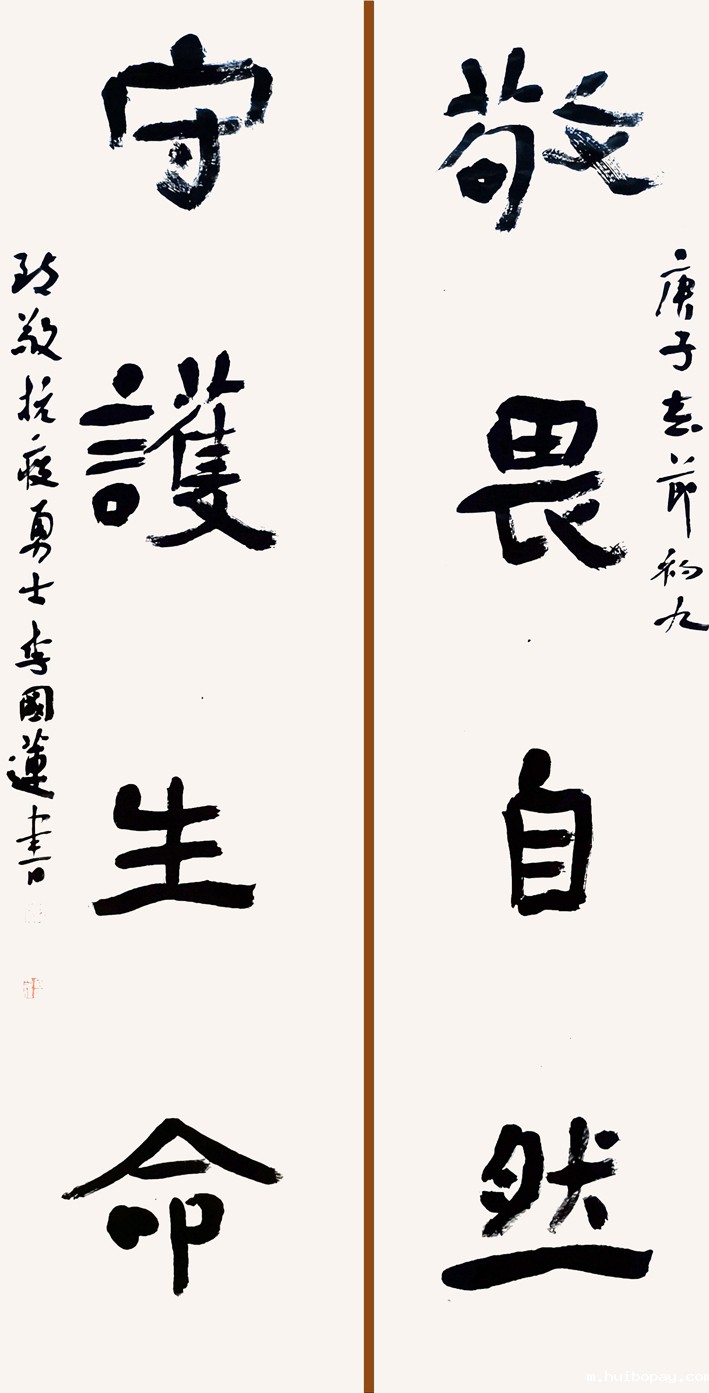 敬畏自然
庚子春節初九
守護生命
致敬抗疫勇士李國蓮書
m.huibopay.com